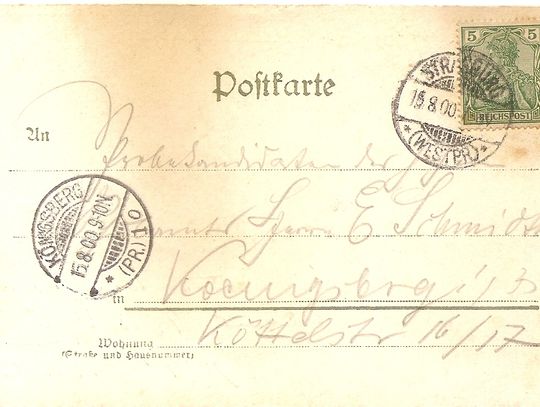 5 5
REICHSPOST
STRASBURG
15.8.00
*(WESTPR.)*
Postkarte
An
Probekandidaten der
Herrn E Schmidt
KÖNIGSBERG
15.8.00.9-10N.
*(PR.)10
in Koenigsberg i/
Wohnung
(Straße und Hausnummer)
16/17